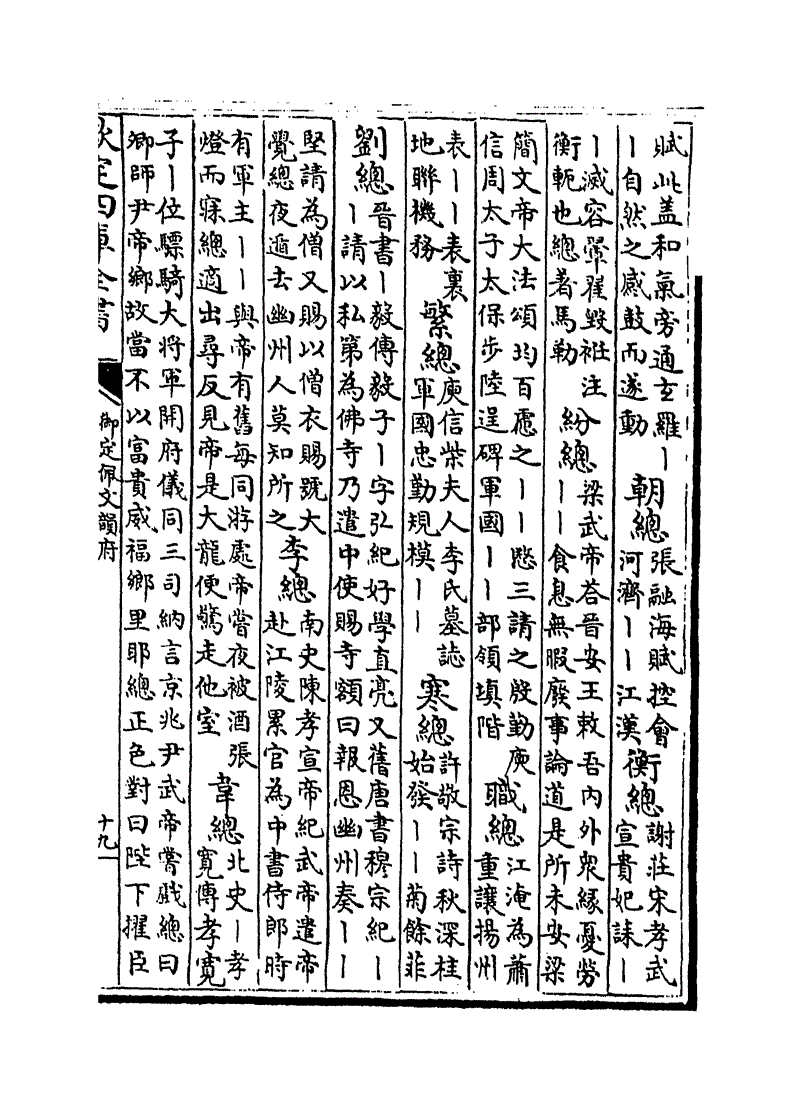 賦此蓋和氣旁通玄羅丨
丨自然之感鼓而遂動
朝總
張融海賦控會
河濟丨丨江漢
衡總
謝莊宋孝武
宣貴妃誄丨
丨滅容翬翟毀衽注
衡軛也總者馬勒
紛總
梁武帝荅晉安王敕吾内外衆緣憂勞
丨丨食息無暇廢事論道是所未安梁
簡文帝大法頌均百慮之丨丨愍三請之殷勤庾
信周太子太保步陸逞碑軍國丨丨部領填階
職總
江淹為蕭
重讓揚州
表丨丨表裏
地聯機務
繁總
庾信柴夫人李氏墓誌
軍國忠勤規模丨丨
寒總
許敬宗詩秋深桂
始發丨丨菊餘菲
劉總
晉書丨毅傳毅子丨字弘紀好學直亮又舊唐書穆宗紀丨
丨請以私第為佛寺乃遣中使賜寺額曰報恩幽州奏丨丨
堅請為僧又賜以僧衣賜號大
覺總夜遁去幽州人莫知所之
李總
南史陳孝宣帝紀武帝遣帝
赴江陵累官為中書侍郎時
有軍主丨丨與帝有舊每同游處帝嘗夜被酒張
燈而寐總適出尋反見帝是大龍便驚走他室
韋總
北史丨孝
寬傳孝寬
子丨位驃騎大將軍開府儀同三司納言京兆尹武帝嘗戲總曰
卿師尹帝鄉故當不以富貴威福鄉里耶總正色對曰陛下擢臣
欽定四庫全書
御定佩文韻府
十九